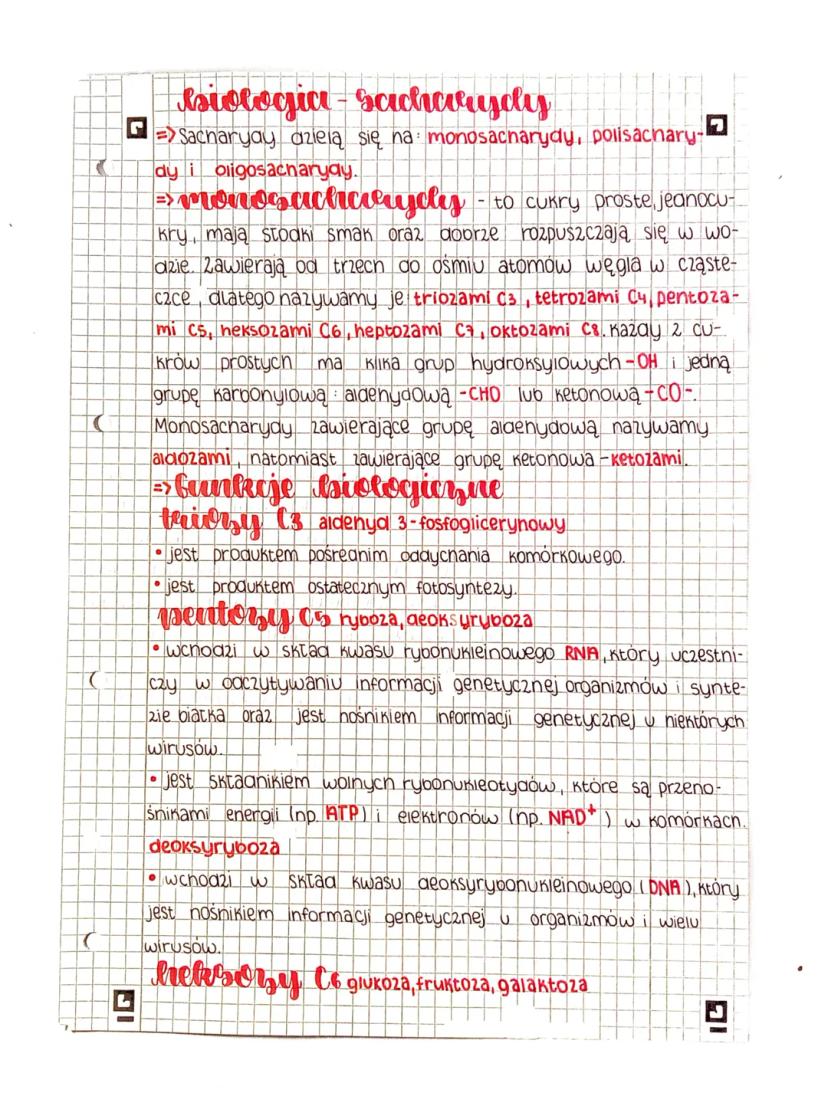 biologia - sacharydy
=> Sacharydy dzielą się na: monosacharydy, polisachary-
dy i oligosacharydy.
=> monosacharydy - to cukry proste, jednocu-
kry, mają słodki smak oraz dobrze rozpuszczają się w wo-
dzie. Zawierają od trzech do ośmiu atomów węgla w cząste-
czce, dlatego nazywamy je triozami C3, tetrozami C4, pentoza-
mi C5, heksozami C6, heptozami C7, oktozami C8. Każdy z cu-
krów prostych ma kilka grup hydroksylowych -OH i jedną
grupę karbonylową: aldehydową -CHO lub ketonową -CO-.
Monosacharydy zawierające grupę aldehydową nazywamy
aldozami, natomiast zawierające grupę ketonowa - ketozami.
=> funkcje biologiczne
triozy C3 aldehyd 3-fosfoglicerynowy
• jest produktem pośrednim oddychania komórkowego.
• jest produktem ostatecznym fotosyntezy.
pentozy C5 ryboza, deoksyryboza
• wchodzi w skład kwasu rybonukleinowego RNA, który uczestni-
czy w odczytywaniu informacji genetycznej organizmów i synte-
zie białka oraz jest nośnikiem informacji genetycznej u niektórych
wirusów.
• jest składnikiem wolnych rybonukleotydów, które są przeno-
śnikami energii (np. ATP) i elektronów (np. NAD⁺) w komórkach.
deoksyryboza
• wchodzi w skład kwasu deoksyrybonukleinowego (DNA), który
jest nośnikiem informacji genetycznej u organizmów i wielu
wirusów.
heksozy C6 glukoza, fruktoza, galaktoza